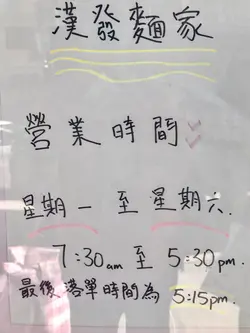 漢發麵家
營業時間
星期一至星期六.
7:30am 至 5:30pm.
最後落單時間為 5:15pm.